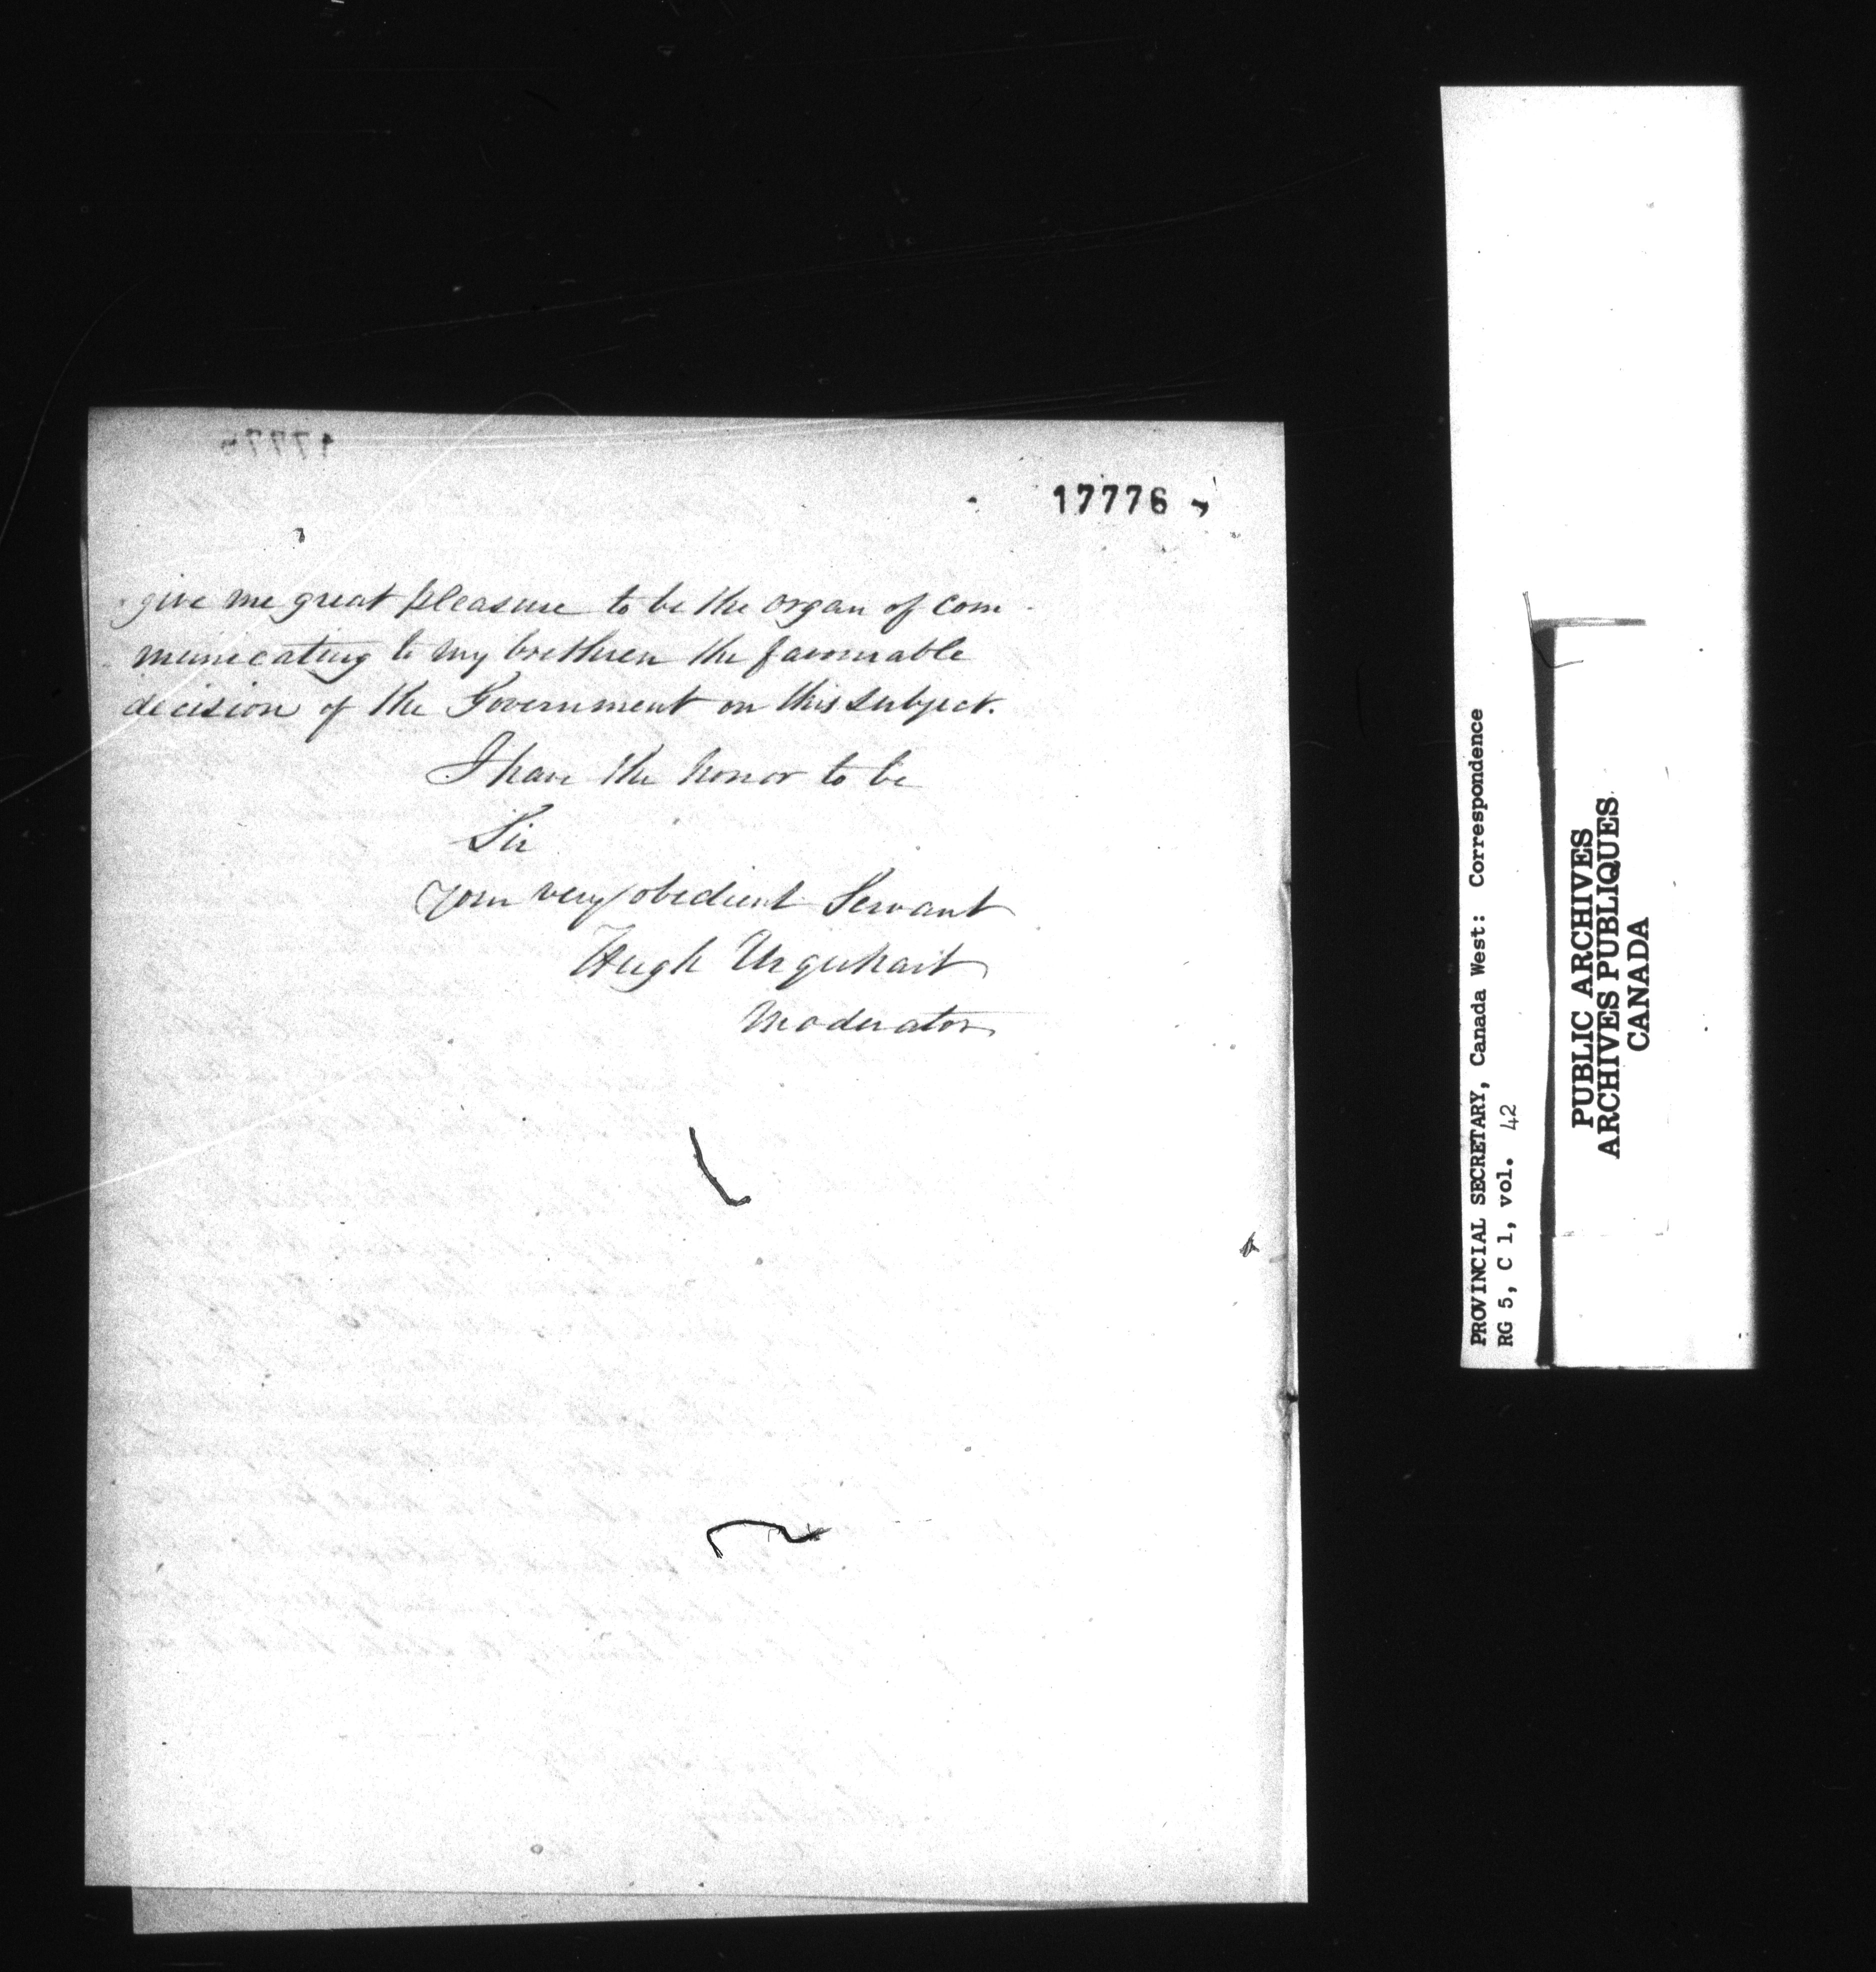 17776
give me great pleasure to be the organ of com-
municating to my brethren the favourable
decision of the Government on this subject.
I have the honor to be
Sir
Your very obedient Servant
Hugh Urquhart
Moderator
PROVINCIAL SECRETARY, Canada West: Correspondence
RG 5, C 1, vol. 42
PUBLIC ARCHIVES
ARCHIVES PUBLIQUES
CANADA